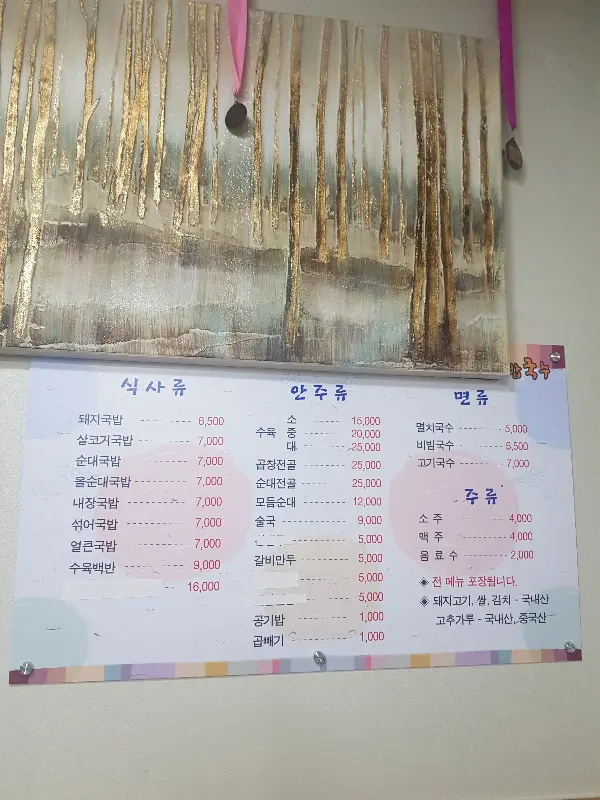 국수
식사류
돼지국밥 6,500
살코기국밥 7,000
순대국밥 7,000
올순대국밥 7,000
내장국밥 7,000
섞어국밥 7,000
얼큰국밥 7,000
수육백반 9,000
16,000
안주류
소 15,000
수육 중 20,000
대 25,000
곱창전골 25,000
순대전골 25,000
모듬순대 12,000
술국 9,000
5,000
갈비만두 5,000
5,000
5,000
공기밥 1,000
곱빼기 1,000
면류
멸치국수 5,000
비빔국수 5,500
고기국수 7,000
주류
소주 4,000
맥주 4,000
음료수 2,000
◈ 전 메뉴 포장됩니다.
◈ 돼지고기, 쌀, 김치 - 국내산
고추가루 - 국내산, 중국산